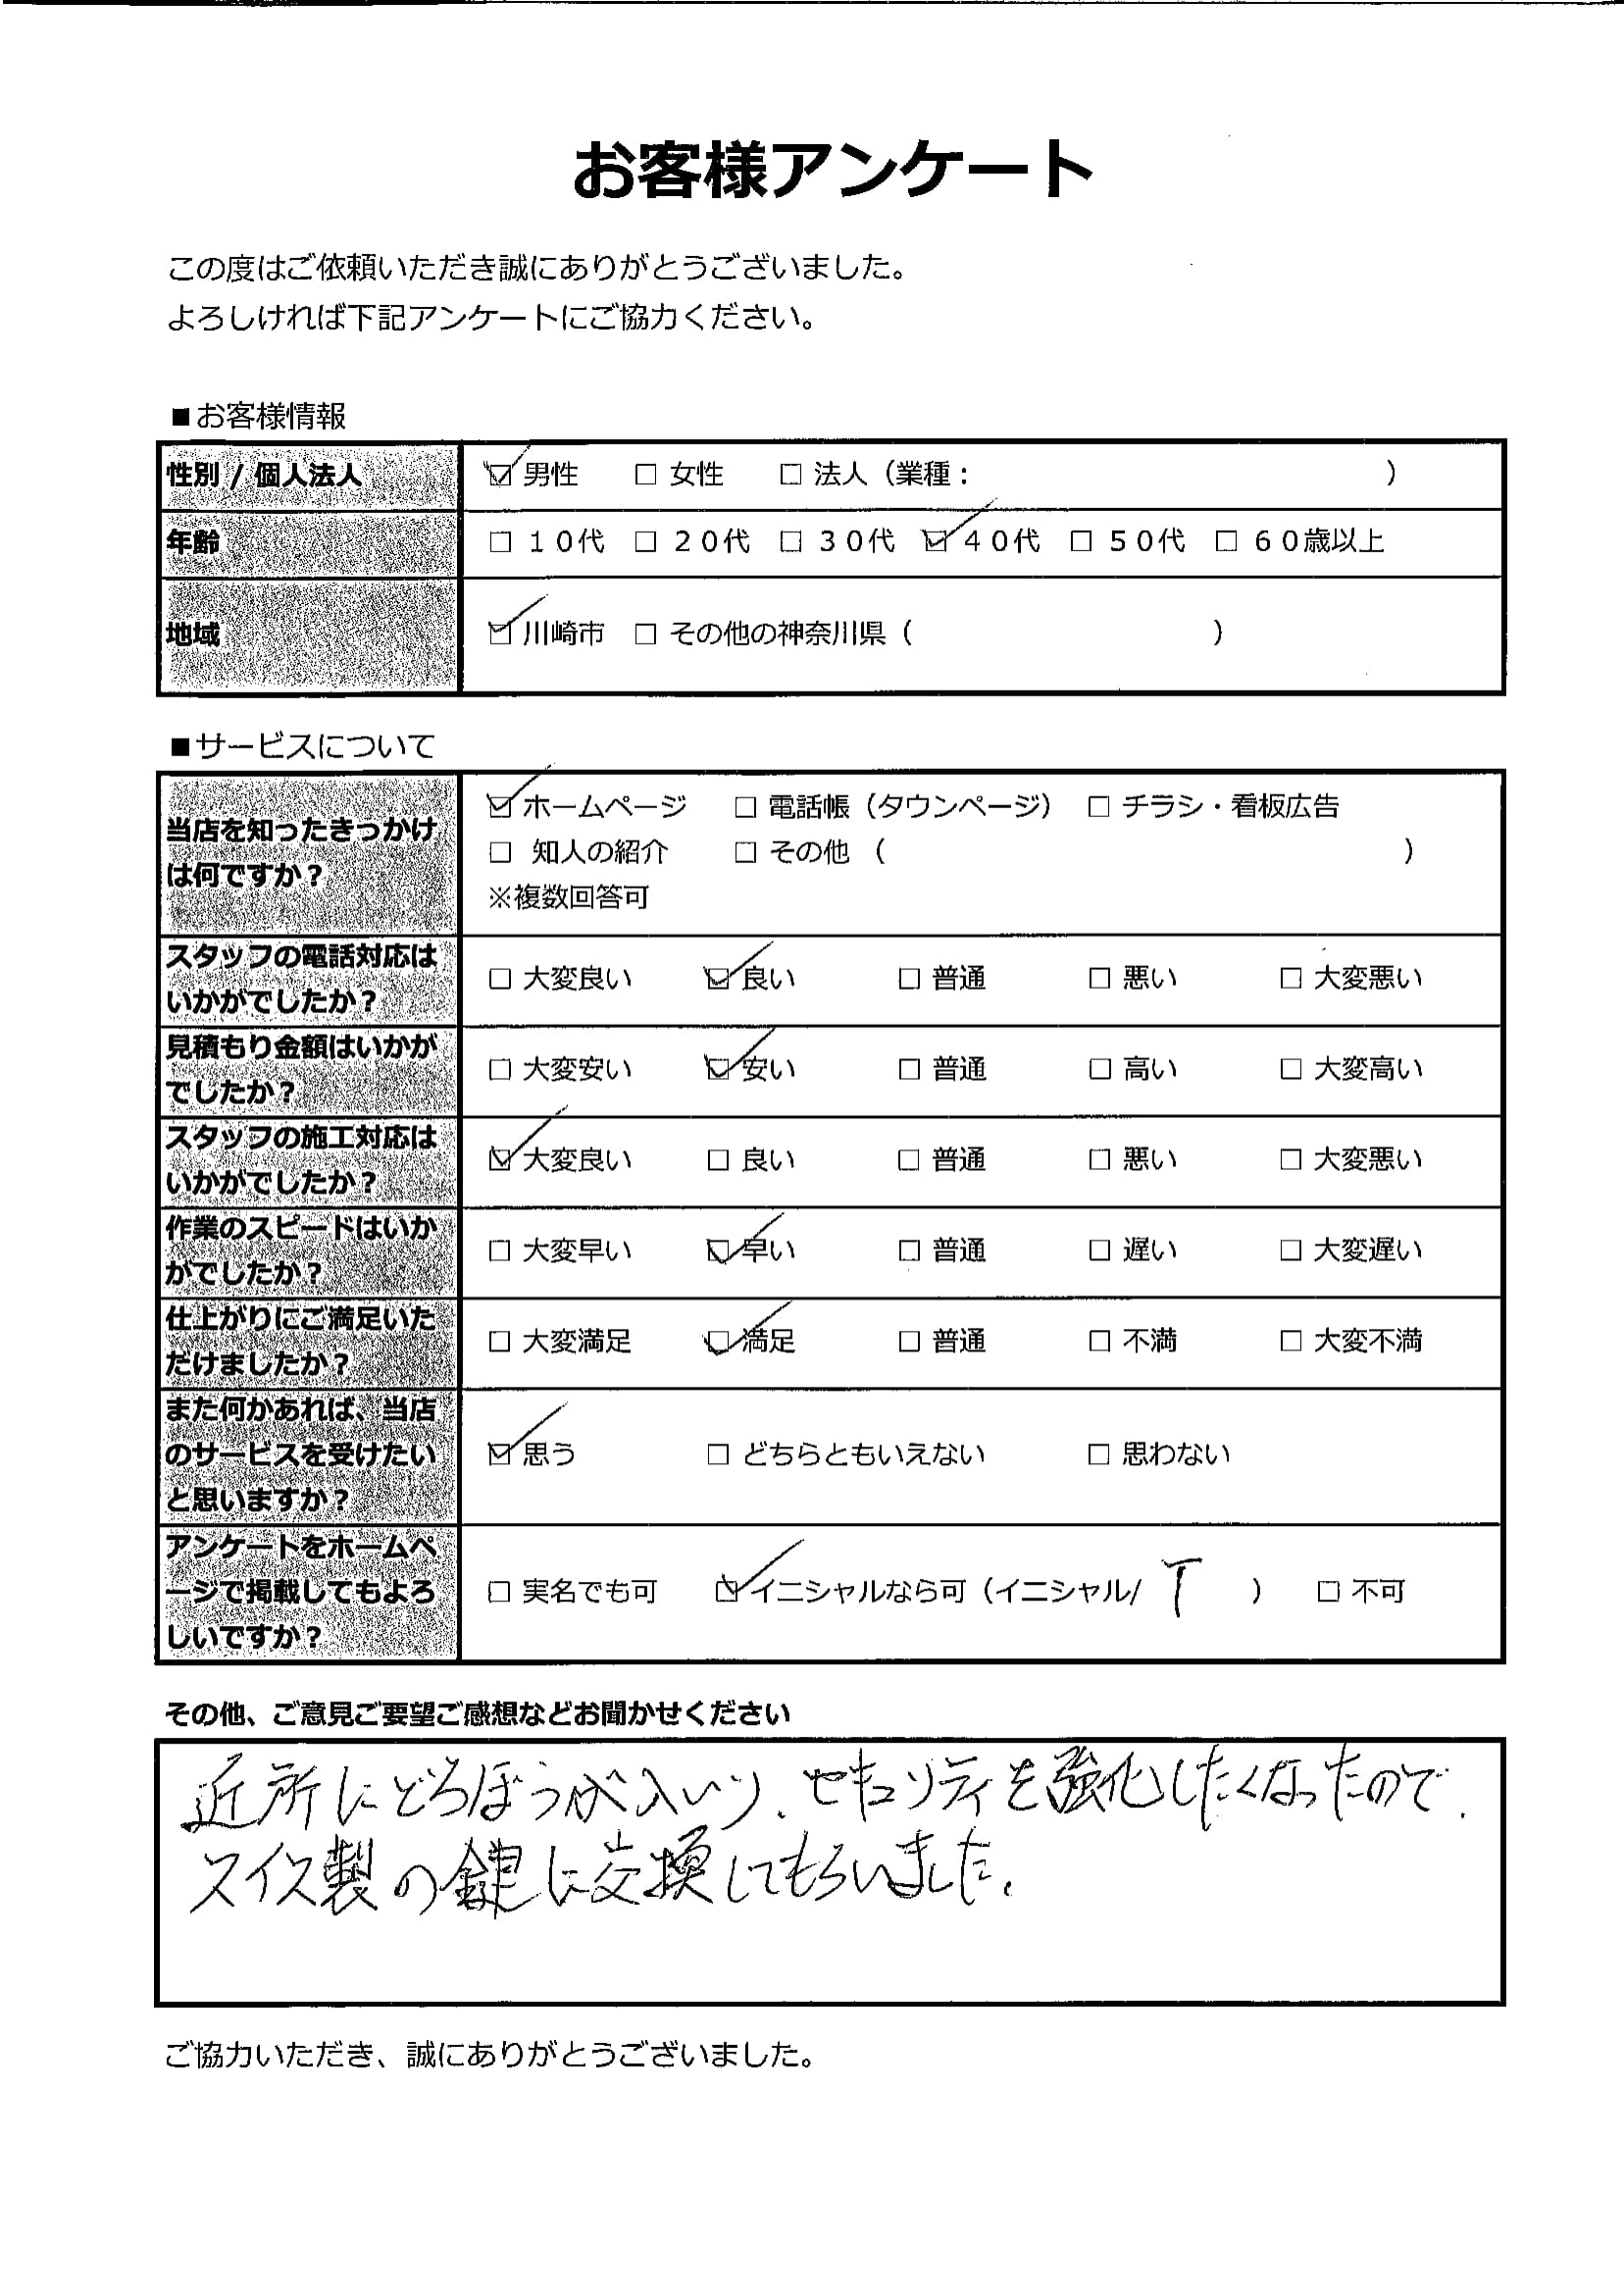 お客様アンケート
この度はご依頼いただき誠にありがとうございました。
よろしければ下記アンケートにご協力ください。
■お客様情報
性別 / 個人法人 ☑ 男性 □ 女性 □ 法人（業種： ）
年齢 □ １０代 □ ２０代 □ ３０代 ☑ ４０代 □ ５０代 □ ６０歳以上
地域 ☑ 川崎市 □ その他の神奈川県（ ）
■サービスについて
当店を知ったきっかけ
は何ですか？
☑ ホームページ □ 電話帳（タウンページ） □ チラシ・看板広告
□ 知人の紹介 □ その他 （ ）
※複数回答可
スタッフの電話対応は
いかがでしたか？
□ 大変良い ☑ 良い □ 普通 □ 悪い □ 大変悪い
見積もり金額はいかが
でしたか？
□ 大変安い ☑ 安い □ 普通 □ 高い □ 大変高い
スタッフの施工対応は
いかがでしたか？
☑ 大変良い □ 良い □ 普通 □ 悪い □ 大変悪い
作業のスピードはいか
がでしたか？
□ 大変早い ☑ 早い □ 普通 □ 遅い □ 大変遅い
仕上がりにご満足いた
だけましたか？
□ 大変満足 ☑ 満足 □ 普通 □ 不満 □ 大変不満
また何かあれば、当店
のサービスを受けたい
と思いますか？
☑ 思う □ どちらともいえない □ 思わない
アンケートをホームペ
ージで掲載してもよろ
しいですか？
□ 実名でも可 ☑ イニシャルなら可（イニシャル/ T ） □ 不可
その他、ご意見ご要望ご感想などお聞かせください
近所にどろぼうが入いり、セキュリティを強化したくなったので、
スイス製の鍵に交換してもらいました。
ご協力いただき、誠にありがとうございました。